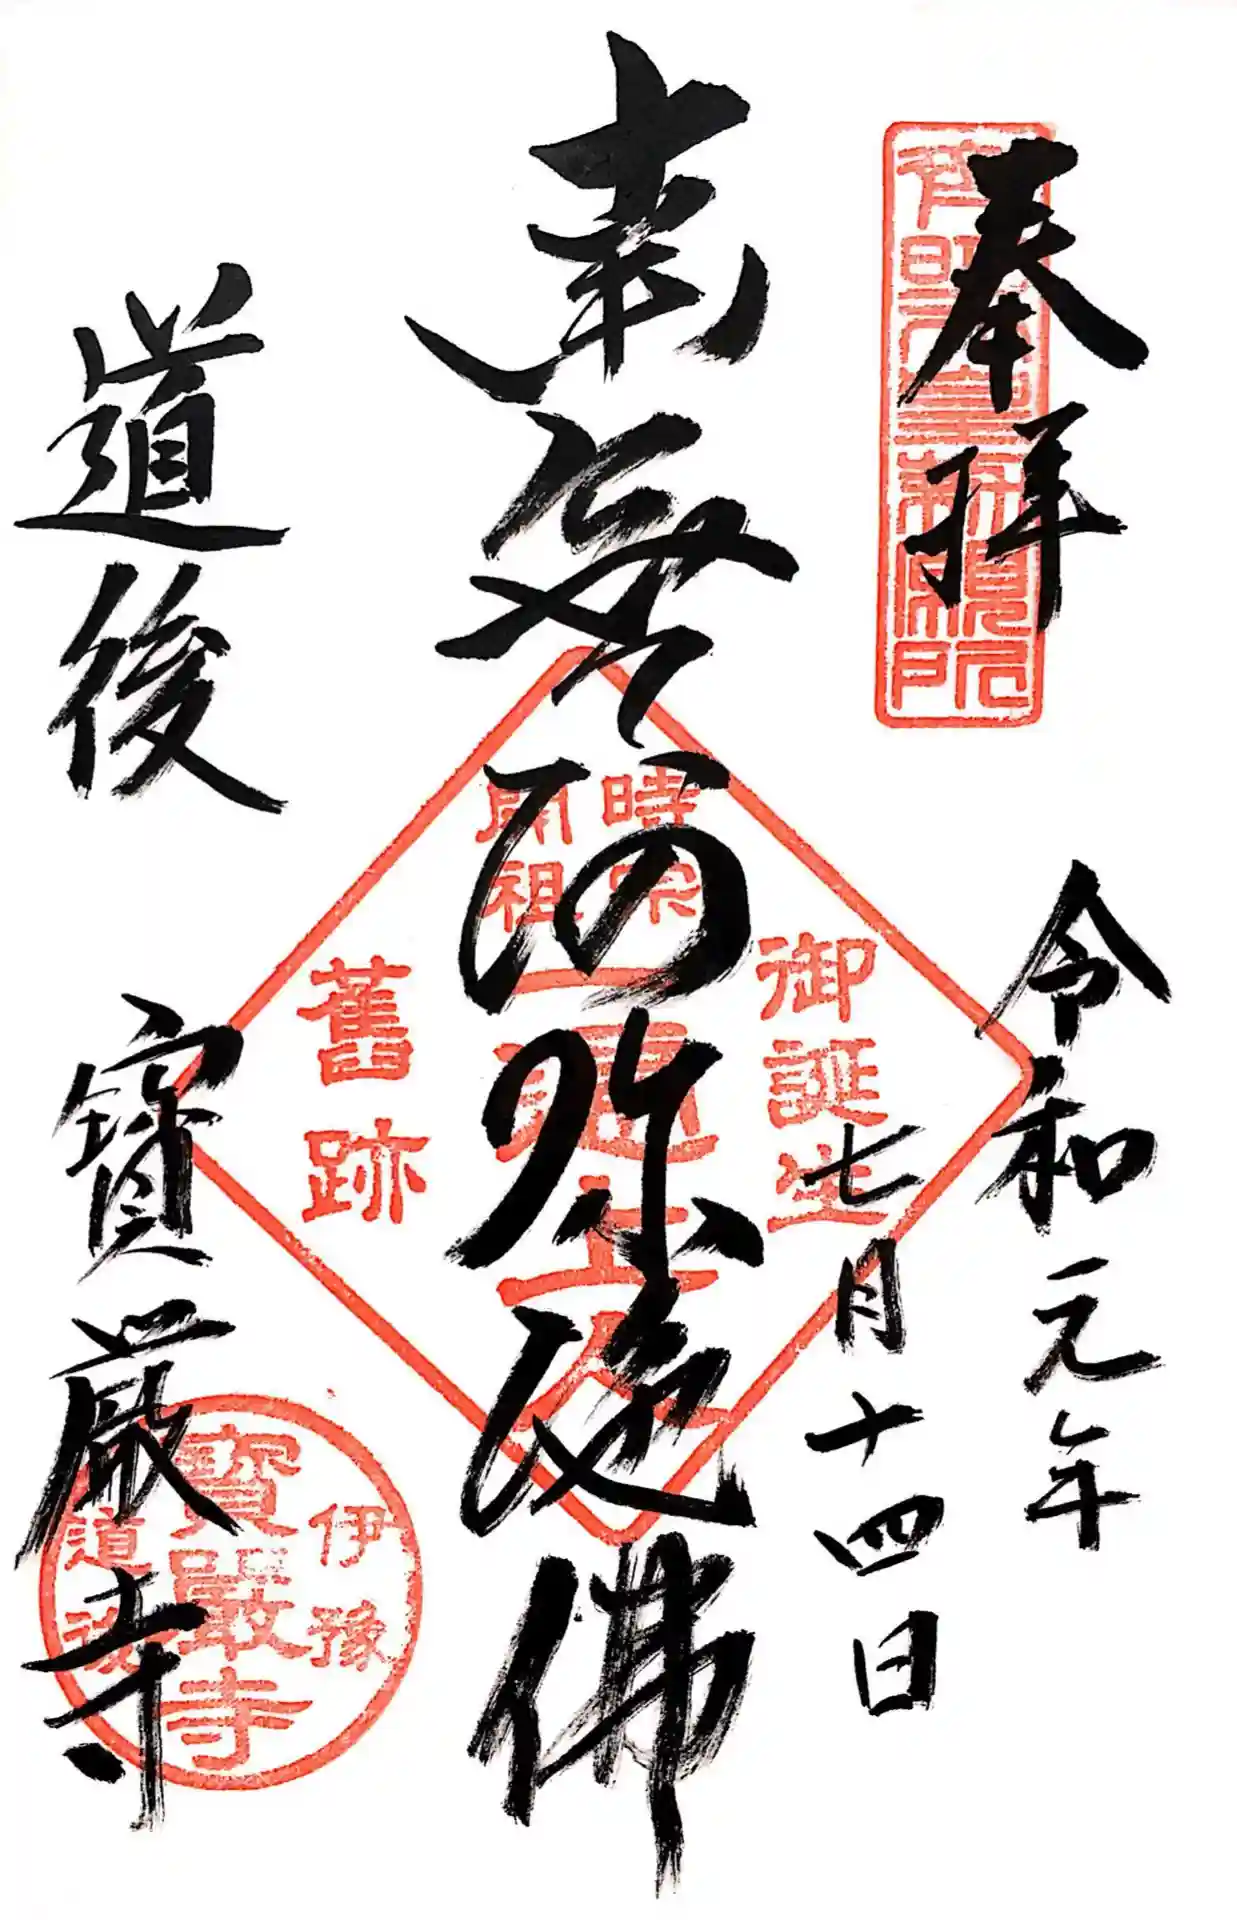 奉拝
斉明天皇勅願所
令和元年
七月十四日
南無阿弥陀佛
時宗
開祖
御誕生
一遍上人
舊跡
道後
寳厳寺
伊豫
寳嚴寺
道後